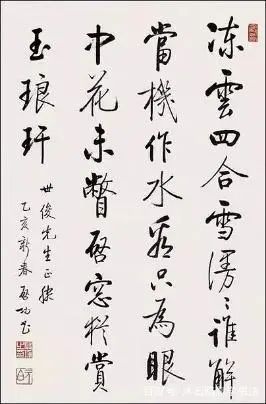 凍雲四合雪漫〻誰解
當機作水看只為眼
中花未瞥啓窗猶賞
玉琅玕
世俊先生正腕
乙亥新春啓功书